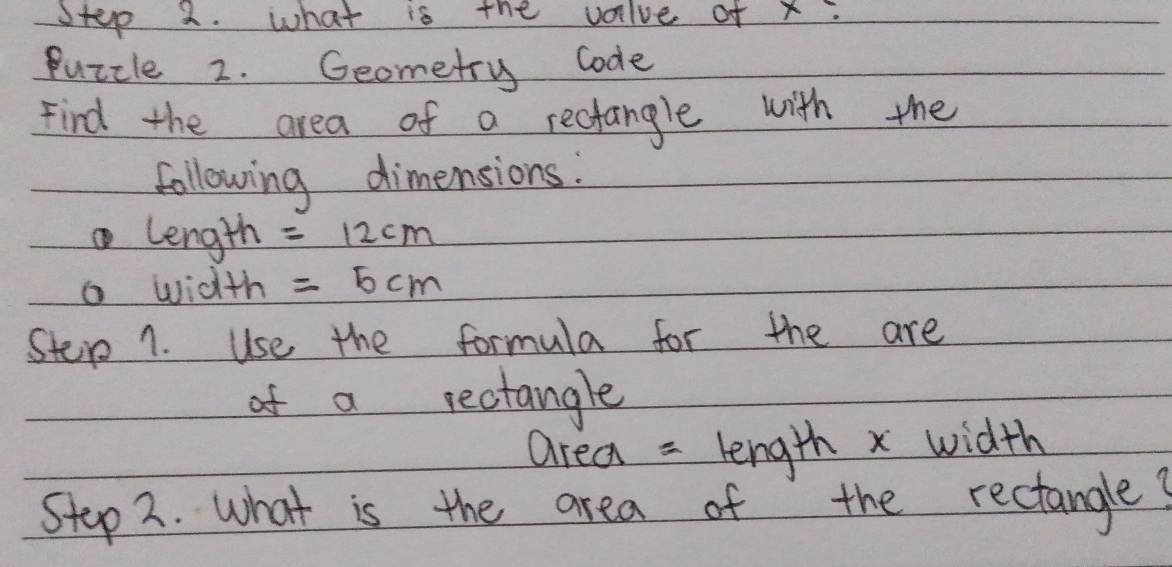 Step 2. What is the value of x?
Puzzle 2. Geometry Code
Find the area of a rectangle with the
following dimensions:
Length = 12cm
width = 5cm
Step 1. Use the formula for the are
of a rectangle
Area = length x width
Step 2. What is the area of the rectangle?